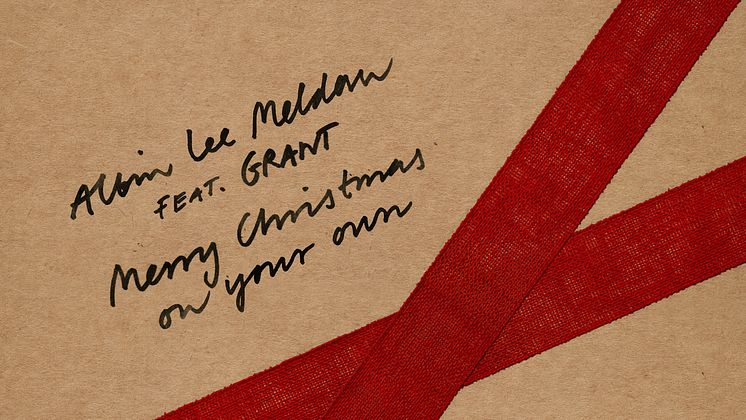 Albin Lee Meldau
FEAT. GRANT
Merry Christmas
on your own